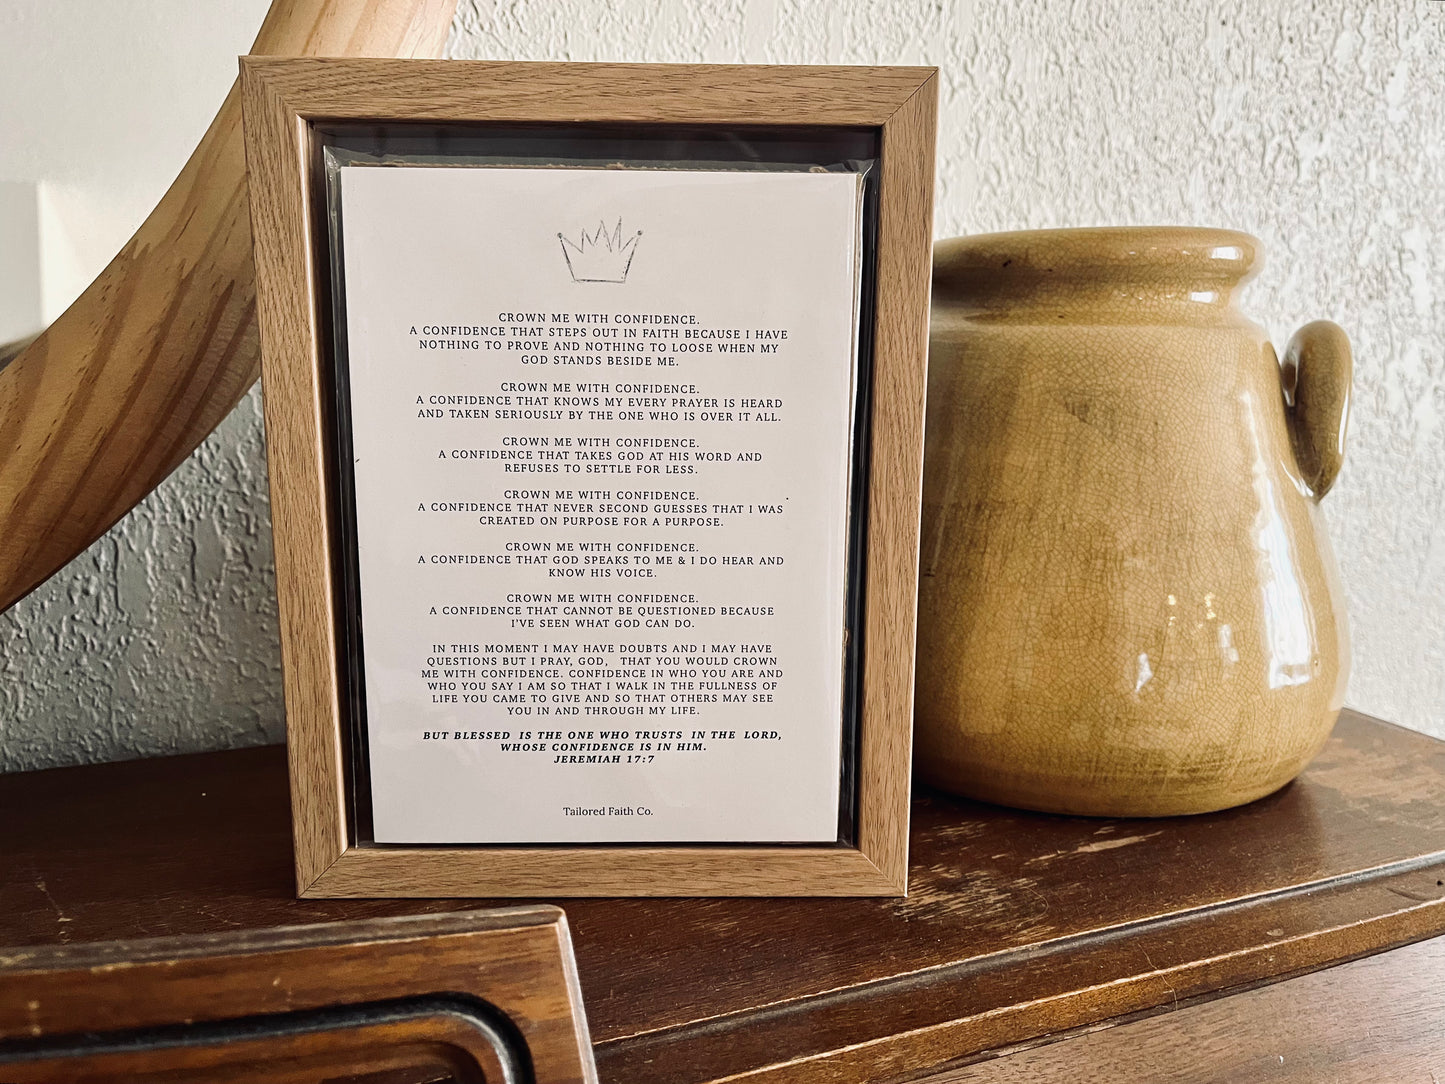 CROWN ME WITH CONFIDENCE.
A CONFIDENCE THAT STEPS OUT IN FAITH BECAUSE I HAVE
NOTHING TO PROVE AND NOTHING TO LOOSE WHEN MY
GOD STANDS BESIDE ME.
CROWN ME WITH CONFIDENCE.
A CONFIDENCE THAT KNOWS MY EVERY PRAYER IS HEARD
AND TAKEN SERIOUSLY BY THE ONE WHO IS OVER IT ALL.
CROWN ME WITH CONFIDENCE.
A CONFIDENCE THAT TAKES GOD AT HIS WORD AND
REFUSES TO SETTLE FOR LESS.
CROWN ME WITH CONFIDENCE.
A CONFIDENCE THAT NEVER SECOND GUESSES THAT I WAS
CREATED ON PURPOSE FOR A PURPOSE.
CROWN ME WITH CONFIDENCE.
A CONFIDENCE THAT GOD SPEAKS TO ME & I DO HEAR AND
KNOW HIS VOICE.
CROWN ME WITH CONFIDENCE.
A CONFIDENCE THAT CANNOT BE QUESTIONED BECAUSE
I'VE SEEN WHAT GOD CAN DO.
IN THIS MOMENT I MAY HAVE DOUBTS AND I MAY HAVE
QUESTIONS BUT I PRAY, GOD, THAT YOU WOULD CROWN
ME WITH CONFIDENCE. CONFIDENCE IN WHO YOU ARE AND
WHO YOU SAY I AM SO THAT I WALK IN THE FULLNESS OF
LIFE YOU CAME TO GIVE AND SO THAT OTHERS MAY SEE
YOU IN AND THROUGH MY LIFE.
BUT BLESSED IS THE ONE WHO TRUSTS IN THE LORD,
WHOSE CONFIDENCE IS IN HIM.
JEREMIAH 17:7
Tailored Faith Co.